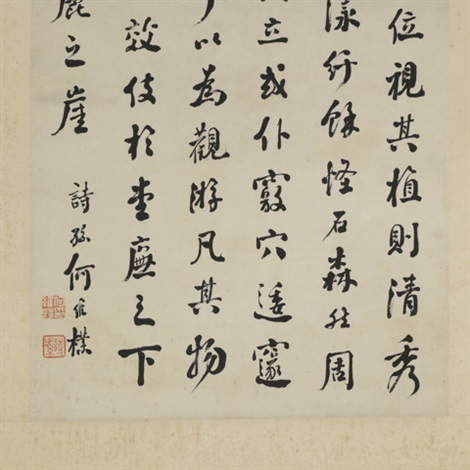 位視其植則清秀
漾紆餘怪石森然周
立或仆竅穴逶邃
以為觀游凡其物
效伎於堂廡之下
麓之崖
詩孫何維樸